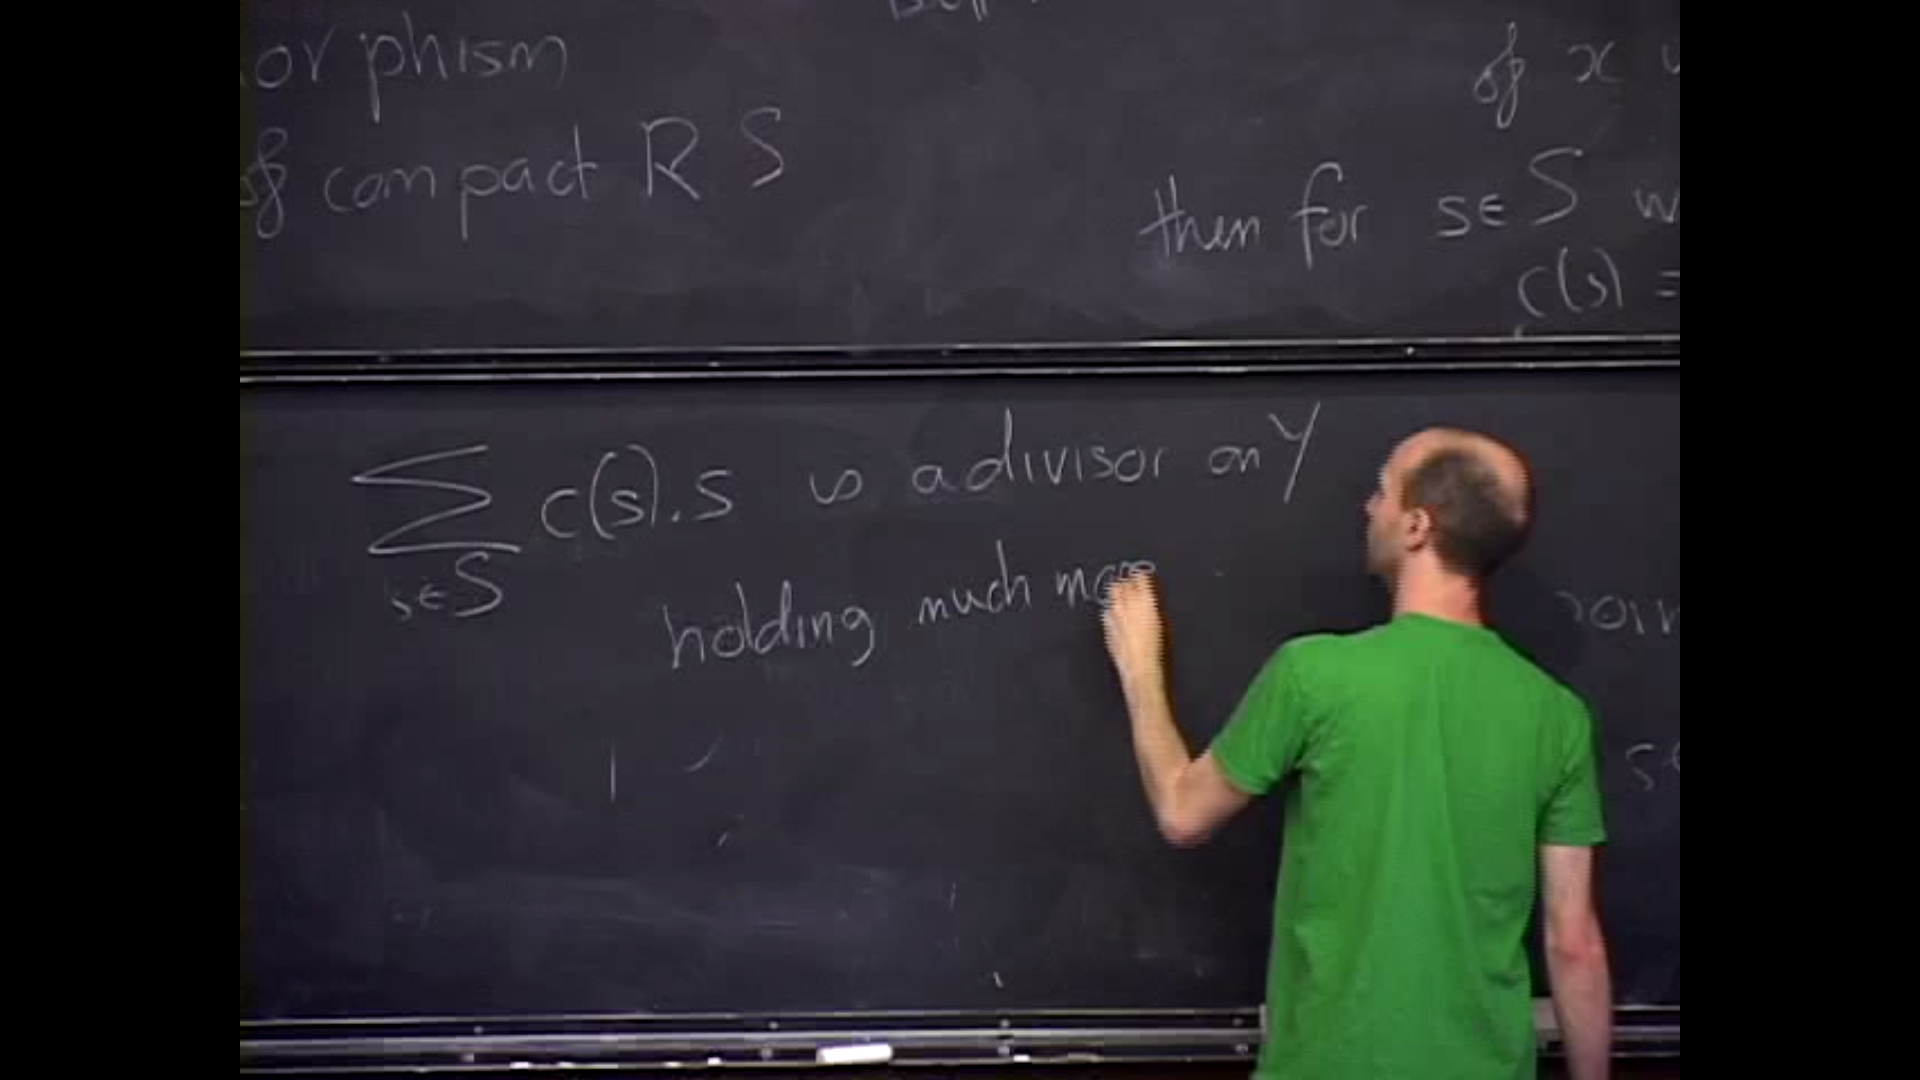 orphism
of compact RS
of x
then for s∈S
c(s) =
∑ c(s).s is a divisor on Y
s∈S
holding much more